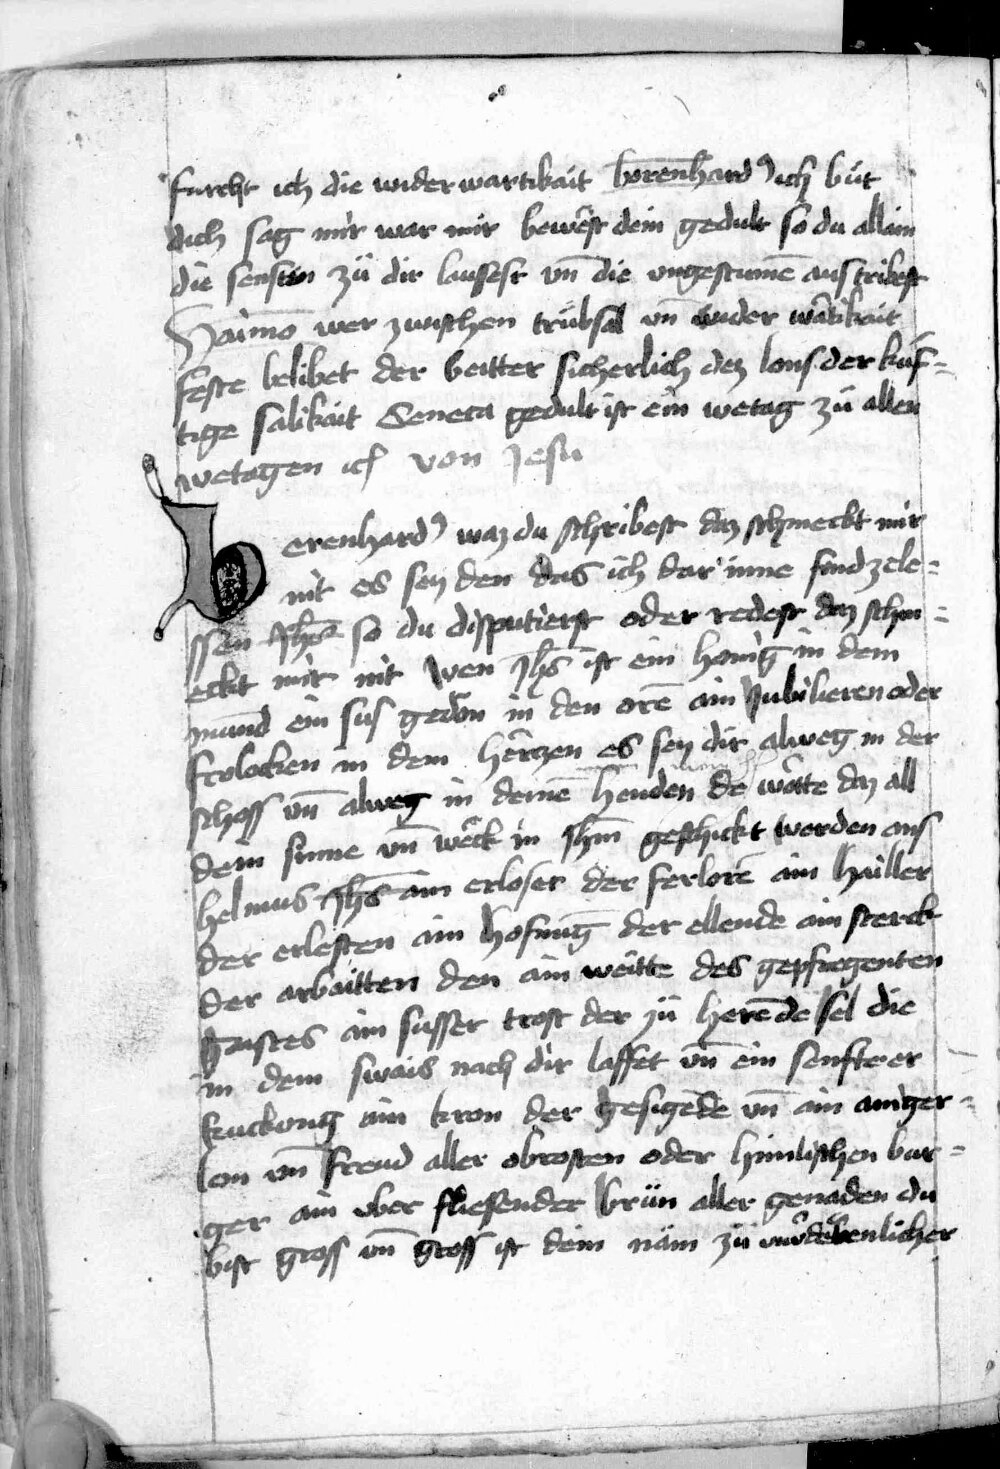 furcht ich die widerwartikait berenhardꝰ ich büt
dich sag mir war mir bewest dein gedult so du allain
die senften zü dir laussest vn̄ die vngestumē austribest
Haimo wer zwischen trübsal vn̄ wider wätikait
feste belibet der beitter sicherlich dez lons der kűf=
tige sälikait Seneca gedult ist ein wetag zü allen
wetagen ich von Jesu
Berenhardꝰ waz du schribest daz schmeckt mir
nit es sey den das ich dar inne find zele=
ssen Jhs̄ so du disputierst oder redest daz schm=
eckt mir nit wen Jhs̄ ist ein honig in dem
mund ein sus gedön in den orē ain Jubilieren oder
frolocken in dem hertzen es sey dir alweg in der
schoss vn̄ alweg in deinē henden de wötte daz all
dein sinne vn̄ wëck in Jhm̄ geschickt werden ans
helmus Jhs̄ ain erloser der ferlorē ain hailler
der erlesten ain hofnūg der ellende ain sterck
der arbaitten den ain weitte des gepfregenten
gaistes ain susser trost der zü herēde sel die
in dem swais nach dir laffet vn̄ ein senfter er
kuckung ain kron der gesigēde vn̄ ain ainger=
lon vn̄ freud aller obrosten oder himlischen bur=
ger ain vber fliessender brün aller genaden du
bist gross vn̄ gross ist dein nam zü